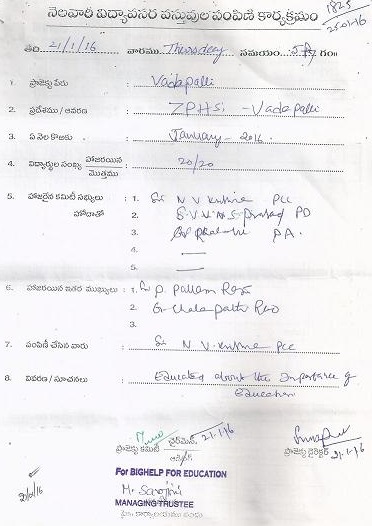 నెలవారీ విద్యావసర వస్తువుల పంపిణీ కార్యక్రమం
1825
25-01-16
తేది. 21/1/16 వారము Thursday సమయం గం॥
1. ప్రాజెక్టు పేరు : Vadapalli
2. ప్రదేశము / ఆవరణ : ZPHS - Vadapalli
3. ఏ నెల కొఱకు : January - 2016
4. విద్యార్థుల సంఖ్య హాజరయిన / మొత్తము : 20/20
5. హాజరైన కమిటీ సభ్యులు : 1. Sri N V Krishna PCC
హోదాతో 2. S.V.V.N.S. Prasad PD
3. PA.
4. —
5. —
6. హాజరయిన ఇతర ముఖ్యులు : 1. Sri P. Pallam Raju
2. Sri Chalapathi Rao
3.
7. పంపిణీ చేసిన వారు : Sri N V. Krishna PCC
8. వివరణ / సూచనలు : Educated about the Importance of
Education
ప్రాజెక్టు కమిటీ చైర్మెన్ 21-1-16
ప్రాజెక్టు డైరెక్టర్ 21-1-16
For BIGHELP FOR EDUCATION
M. Sarojini
MANAGING TRUSTEE